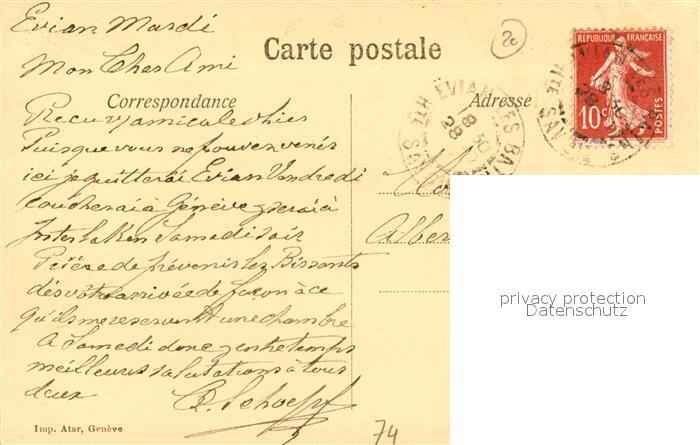 Evian Mardi
Carte postale
20
Mon Cher Ami
Correspondance
Adresse
Recu vs amicales d'hier
Puisque vous ne pouvez venir
ici je quitterai Evian Vendredi
coucherai à Genève & serai à
Interlaken Samedi soir
Prière de prévenir les
dès votre arrivée de façon à ce
qu'ils me reservent une chambre
A Samedi donc & entretemps
meilleures salutations à tous
deux
Schoepf
Imp. Atar, Genève
74
REPUBLIQUE FRANÇAISE
10c
POSTES
EVIAN LES BAINS
HTE SAVOIE
Alber
privacy protection
Datenschutz